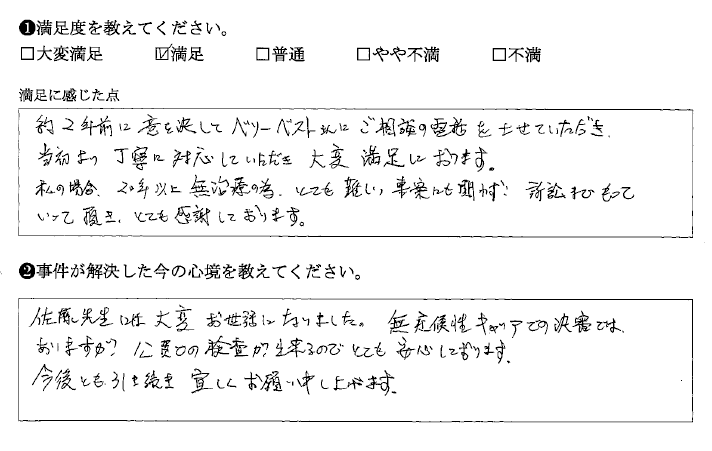 ❶満足度を教えてください。
□大変満足 ☑満足 □普通 □やや不満 □不満
満足に感じた点
約2年前に意を決してベリーベストさんにご相談の電話をさせていただき、
当初より丁寧に対応していただき大変満足しております。
私の場合、20年以上無治療の為、とても難しい事案にも関わず、訴訟までもって
いって頂き、とても感謝しております。
❷事件が解決した今の心境を教えてください。
佐原先生には大変お世話になりました。無症候性キャリアでの決着では、
ありますが、公費での検査が出来るのでとても安心しております。
今後とも引き続き宜しくお願い申し上げます。